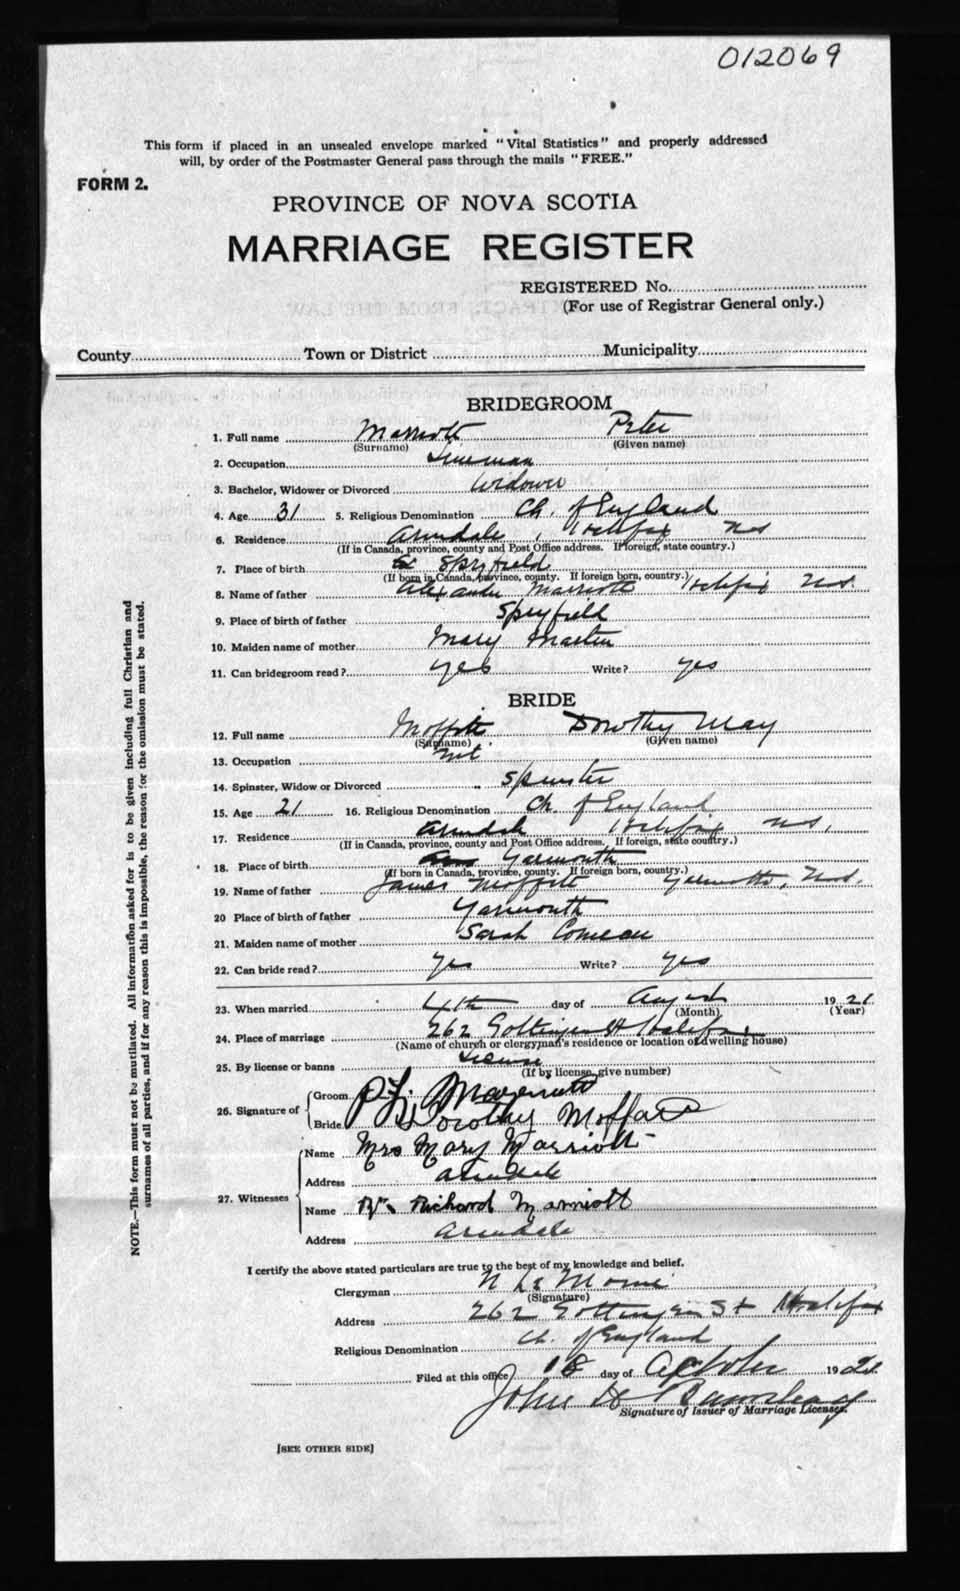 012069
This form if placed in an unsealed envelope marked "Vital Statistics" and properly addressed
will, by order of the Postmaster General pass through the mails "FREE."
FORM 2.
PROVINCE OF NOVA SCOTIA
MARRIAGE REGISTER
REGISTERED No.
(For use of Registrar General only.)
County Town or District Municipality
BRIDEGROOM
1. Full name Marriott Peter
(Surname) (Given name)
2. Occupation Lineman
3. Bachelor, Widower or Divorced Widower
4. Age 31 5. Religious Denomination Ch. of England
6. Residence Armdale, Halifax NS
(If in Canada, province, county and Post Office address. If foreign, state country.)
7. Place of birth Spryfield
(If born in Canada, province, county. If foreign born, country.)
8. Name of father Alexander Marriott Halifax N.S.
9. Place of birth of father Spryfield
10. Maiden name of mother Mary Martin
11. Can bridegroom read? yes Write? yes
BRIDE
12. Full name Moffitt Dorothy May
(Surname) (Given name)
13. Occupation
14. Spinster, Widow or Divorced Spinster
15. Age 21 16. Religious Denomination Ch. of England
17. Residence Armdale Halifax N.S.
(If in Canada, province, county and Post Office address. If foreign, state country.)
18. Place of birth Yarmouth
(If born in Canada, province, county. If foreign born, country.)
19. Name of father James Moffitt Yarmouth, N.S.
20 Place of birth of father Yarmouth
21. Maiden name of mother Sarah Comeau
22. Can bride read? yes Write? yes
23. When married 4th day of August 1921
(Month) (Year)
24. Place of marriage 262 Gottingen St Halifax
(Name of church or clergyman's residence or location of dwelling house)
25. By license or banns License
(If by license, give number)
26. Signature of
Groom Marriott
Bride Dorothy
27. Witnesses
Name Mrs Mary Marriott
Address Armdale
Name Richard Marriott
Address Armdale
I certify the above stated particulars are true to the best of my knowledge and belief.
Clergyman N Le Moine
(Signature)
Address 262 Gottingen St Halifax
Religious Denomination Ch. of England
Filed at this office 18 day of October 1921
John
Signature of Issuer of Marriage Licenses.
[SEE OTHER SIDE]
NOTE.—This form must not be mutilated. All information asked for is to be given including full Christian and
surnames of all parties, and if for any reason this is impossible, the reason for the omission must be stated.